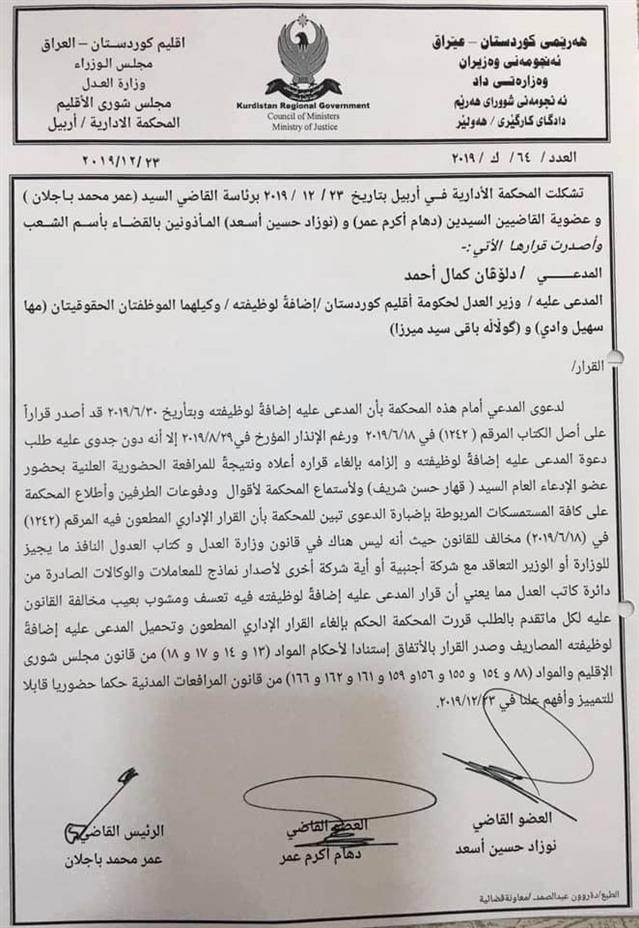 اقليم كوردستان – العراق
مجلس الوزراء
وزارة العدل
مجلس شورى الأقليم
المحكمة الادارية / أربيل
Kurdistan Regional Government
Council of Ministers
Ministry of Justice
هەرێمی کوردستان – عێراق
ئەنجومەنی وەزیران
وەزارەتی داد
ئە نجومەنی شوورای هەرێم
دادگای کارگێری / هەولێر
العدد / ٦٤/ ك / ٢٠١٩
٢٠١٩/١٢/٢٣
تشكلت المحكمة الأدارية في أربيل بتاريخ ٢٣ / ١٢ / ٢٠١٩ برئاسة القاضي السيد (عمر محمد باجلان )
و عضوية القاضيين السيدين (دهام أكرم عمر) و (نوزاد حسين أسعد) المأذونين بالقضاء بأسم الشعب
وأصدرت قرارها الأتي :-
المدعـــــي / دلۆڤان كمال أحمد
المدعى عليه / وزير العدل لحكومة أقليم كوردستان /إضافةً لوظيفته / وكيلهما الموظفتان الحقوقيتان (مها
سهيل وادي) و (گوڵاڵه باقى سيد ميرزا)
القرار/
لدعوى المدعي أمام هذه المحكمة بأن المدعى عليه إضافةً لوظيفته وبتأريخ ٢٠١٩/٦/٣٠ قد أصدر قراراً
على أصل الكتاب المرقم (١٢٤٢) في ٢٠١٩/٦/١٨ ورغم الإنذار المؤرخ في٢٠١٩/٨/٢٩ إلا أنه دون جدوى عليه طلب
دعوة المدعى عليه إضافةً لوظيفته و إلزامه بإلغاء قراره أعلاه ونتيجةً للمرافعة الحضورية العلنية بحضور
عضو الإدعاء العام السيد ( قهار حسن شريف) ولأستماع المحكمة لأقوال ودفوعات الطرفين وأطلاع المحكمة
على كافة المستمسكات المربوطة بإضبارة الدعوى تبين للمحكمة بأن القرار الإداري المطعون فيه المرقم (١٢٤٢)
في (٢٠١٩/٦/١٨) مخالف للقانون حيث أنه ليس هناك في قانون وزارة العدل و كتاب العدول النافذ ما يجيز
للوزارة أو الوزير التعاقد مع شركة أجنبية أو أية شركة أخرى لأصدار نماذج للمعاملات والوكالات الصادرة من
دائرة كاتب العدل مما يعني أن قرار المدعى عليه إضافةً لوظيفته فيه تعسف ومشوب بعيب مخالفة القانون
عليه لكل ماتقدم بالطلب قررت المحكمة الحكم بإلغاء القرار الإداري المطعون وتحميل المدعى عليه إضافةً
لوظيفته المصاريف وصدر القرار بالأتفاق إستنادا لأحكام المواد (١٣ و ١٤ و ١٧ و ١٨) من قانون مجلس شورى
الإقليم والمواد (٨٨ و ١٥٤ و ١٥٥ و ١٥٦و ١٥٩ و ١٦١ و ١٦٢ و ١٦٦) من قانون المرافعات المدنية حكما حضوريا قابلا
للتمييز وأفهم علنا في ٢٠١٩/١٢/٢٣.
العضو القاضي
نوزاد حسين أسعد
العضو القاضي
دهام أكرم عمر
الرئيس القاضي
عمر محمد باجلان
الطبع/دةروون عبدالصمد/معاونة قضائية